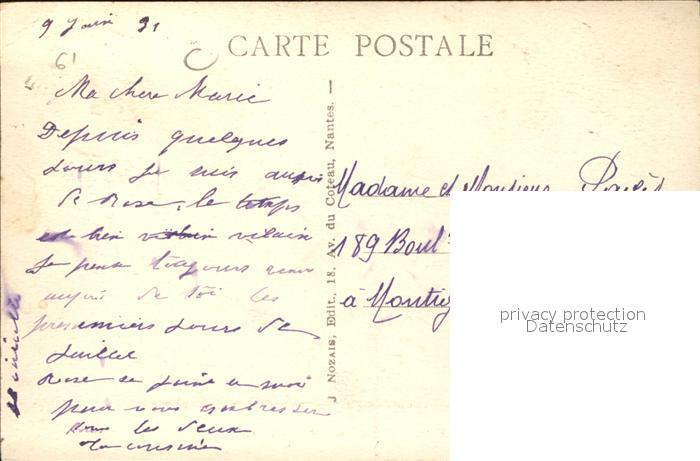 9 Juin 31
61
CARTE POSTALE
Ma chere Marie
Depuis quelques
Jours je suis aupres
de Rose, le temps
est bien vilain
Je pense toujours
aupres de toi les
premiers Jours de
Juillet
Rose se joint a moi
pour vous embrasser
tous les deux
ta cousine
J NOZAIS, Edit., 18. Av. du Coteau, Nantes. —
Madame et Monsieur
189 Boul
à Montig
privacy protection
Datenschutz